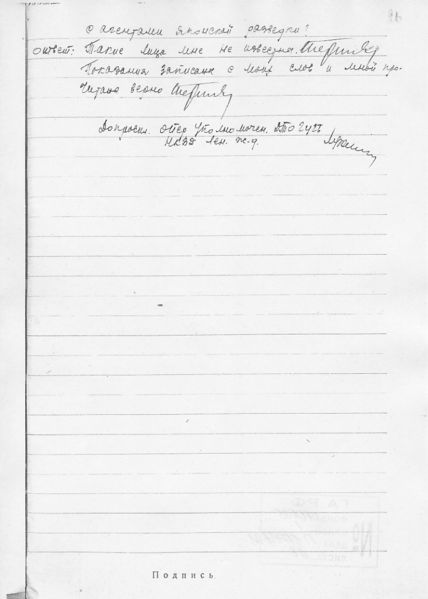 с агентами японской разведки?
ответ: Такие лица мне не известны.
Показания записаны с моих слов и мной про-
читано верно
Допросил опер уполномочен. ДТО ГУГБ
НКВД Лен. ж.д.
Подпись